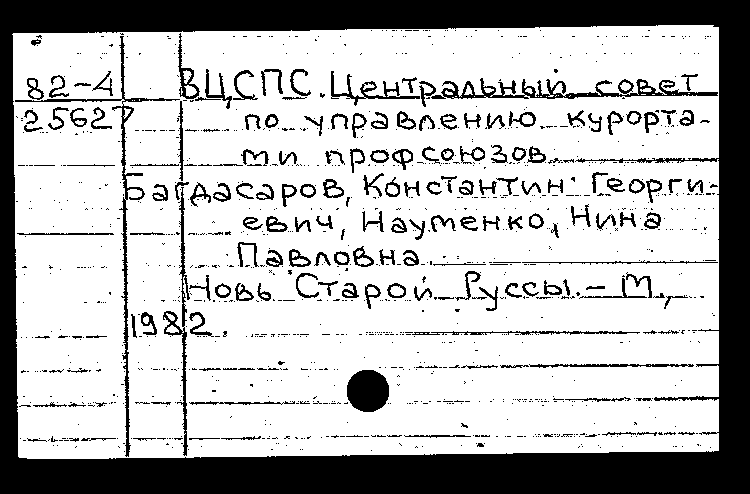 82-4 ВЦСПС. Центральный совет
25627 по управлению курорта-
ми профсоюзов.
Багдасаров, Константин Георги-
евич, Науменко, Нина
Павловна.
Новь Старой Руссы. – М.,
1982.